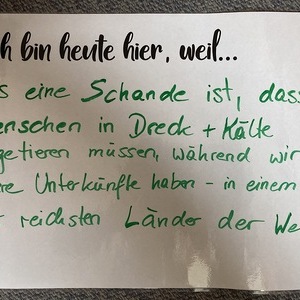 h bin heute hier, weil...
s eine Schande ist, dass
enschen in Dreck + Kälte
getieren müssen, während wir
re Unterkünfte haben - in einem
r reichsten Länder der We